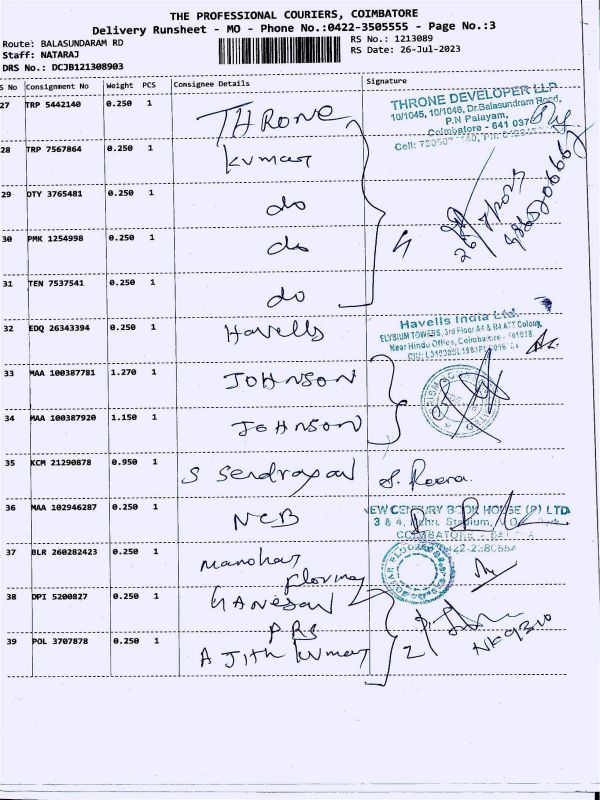 THE PROFESSIONAL COURIERS, COIMBATORE
Delivery Runsheet - MO - Phone No.:0422-3505555 - Page No.:3
Route: BALASUNDARAM RD
RS No.: 1213089
Staff: NATARAJ
RS Date: 26-Jul-2023
DRS No.: DCJB121308903
S No Consignment No Weight PCS Consignee Details Signature
27 TRP 5442140 0.250 1 THRONE
THRONE DEVELOPER LLP
10/1045, 10/1046, Dr.Balasundram Road,
P.N Palayam,
Coimbatore - 641 037
28 TRP 7567864 0.250 1 kumar
29 DTY 3765481 0.250 1 do
30 PMK 1254998 0.250 1 do
31 TEN 7537541 0.250 1 do
32 EDQ 26343394 0.250 1 Havells
Havells India Ltd.
ELYSIUM TOWERS, 3rd Floor A4 & B4 ATT Colony,
Near Hindu Office, Coimbatore
33 MAA 100387781 1.270 1 JOHNSON
34 MAA 100387920 1.150 1 JOHNSON
35 KCM 21290878 0.950 1 S Sendrayan
36 MAA 102946287 0.250 1 NCB
NEW CENTURY BOOK HOUSE (P) LTD
3 & 4, Nehru Stadium,
COIMBATORE
37 BLR 260282423 0.250 1 manohar
38 DPI 5200827 0.250 1 GANESAN
PRS
39 POL 3707878 0.250 1 AJith kumar
2